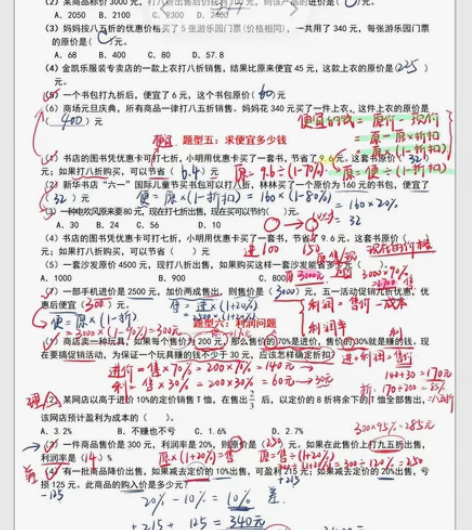 (2) 某商品标价 3000 元，打八折出售后仍
A. 2050 B. 2100 C. 2300 D.
(3) 妈妈按八五折的优惠价格买了 5 张游乐园门票（价格相同），一共用了 340 元，每张游乐园门票
的原价是（ C ）元。
A. 68 B. 400 C. 80 D. 57.8
(4) 金凯乐服装专卖店的一款上衣打八折销售，结果比原来便宜 45 元，这款上衣的原价是（225）
元。
(5) 一个书包打九折后，便宜了 6 元，这个书包原价（60）元
(6) 商场元旦庆典，所有商品一律打八五折销售。妈妈花 340 元买了一件上衣，这件上衣的原价是
（400）元
便宜的钱=原价-现价
=原-原×折扣
=原×(1-折扣)
便宜 题型五：求便宜多少钱
(1) 书店的图书凭优惠卡可打七折，小明用优惠卡买了一套书，节省了 9.6 元。这套书原价（32）
元；如果打八折购买，可以节省（6.4）元 原=9.6÷(1-70%) 原=便÷(1-折扣)
(2) 新华书店“六一”国际儿童节买书包可以打八折，林林买了一个原价为 160 元的书包，便宜了
（32）元 便=原×(1-折扣)=160×(1-80%)=160×20%
=32
(3) 一种电吹风原来要 80 元，现在打七折出售，现在买可以节约（ ）元。
A. 30 B. 24 C. 56 D. 10
(4) 书店的图书凭优惠卡可打七折，小明用优惠卡买了一套书，节省了 9.6 元。这套书原价（ ）
元；如果打八折购买，可以节省（ ）元
(5) 一套沙发原价 4500 元，现打八折出售，如果购买这样一套沙发能省多
A. 1000 B. 900 C. 800
(7) 一部手机进价是 2500 元，加价两成售出，则售价是（3000）元，五一活动促销九折优惠，优
惠后便宜（300）元。 售=进×(1+20%)
便=原×(1-折)
=3000×(1-90%)=300元
利润=售价-成本
利润率
题型六：利润问题
(1) 商店卖一种玩具，如果每个售价为 200 元，那么售价的 70%是进价，售价的 30%就是赚的钱。现
在要搞促销活动，为保证一个玩具赚的钱不少于 30 元，应该怎样确定折扣？ 进+利=售价
进价=售×70%=200×70%=140元
140+30=170元
利=售×30%=200×30%=60元
折:170÷200=85%
(2) 某网店以高于进价 10%的定价销售 T 恤，在售出 2/3 后，以定价的 8 折将余下的 T 恤全部售出，
该网店预计盈利为成本的（ ）。
A. 3.2% B. 不赚也不亏 C. 1.6% D. 2.7%
300×95%=285元
(3) 一件商品售价是 300 元，利润率是 20%，则原价是（250）元。如果在此售价上打九五折出售，
利润率是（14）% 原×(1+20%)=售 原=售÷(1+20%)
=300÷120%=250
(4) 有一批商品降价出售，如果减去定价的 10%出售，可盈利 215 元；如果减去定价的 20%出售，亏
损 125 元。此商品的购入价是多少元？ +215
-125
20%-10%=10% 差
+215+125=340元